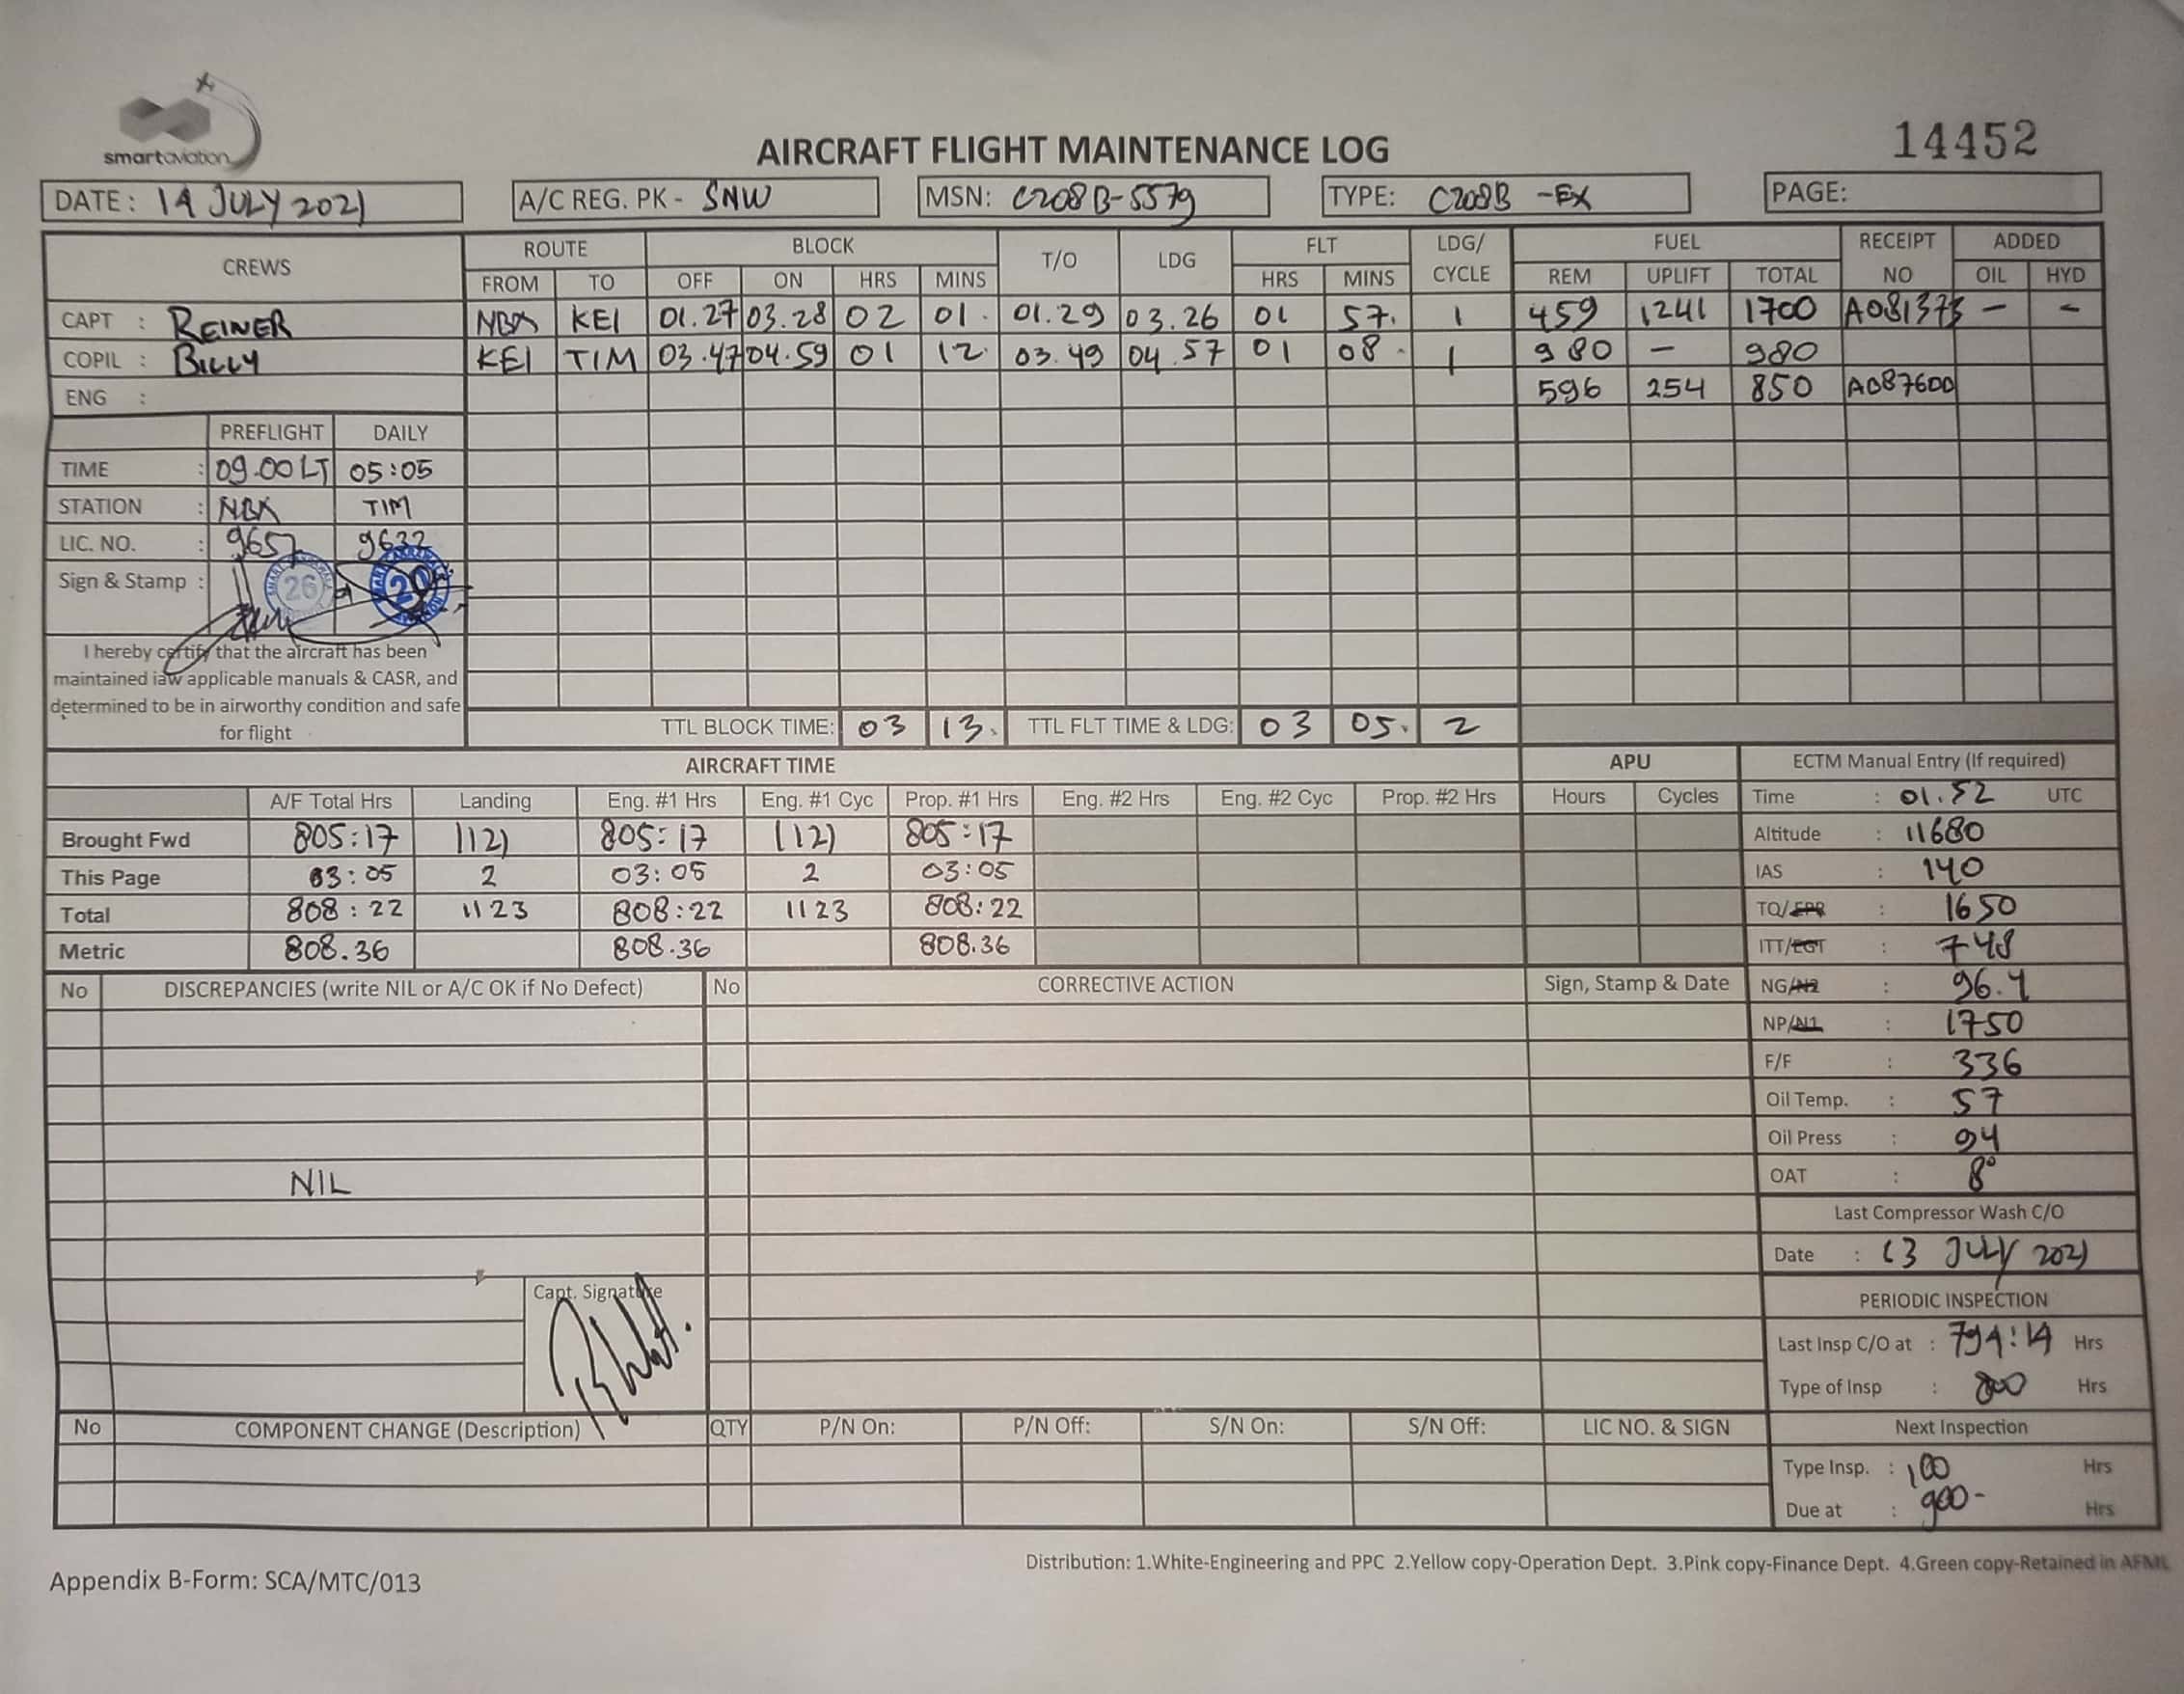 smartaviation
14452
AIRCRAFT FLIGHT MAINTENANCE LOG
DATE: 14 JULY 2021 A/C REG. PK - SNW MSN: C208B-5579 TYPE: C208B -EX PAGE:
CREWS ROUTE BLOCK T/O LDG FLT LDG/ CYCLE FUEL RECEIPT NO ADDED
FROM TO OFF ON HRS MINS HRS MINS REM UPLIFT TOTAL OIL HYD
CAPT : REINER NBX KEI 01.27 03.28 02 01. 01.29 03.26 01 57. 1 459 1241 1700 A081373 - -
COPIL : BILLY KEI TIM 03.47 04.59 01 12. 03.49 04.57 01 08. 1 980 - 980
ENG : 596 254 850 A087600
PREFLIGHT DAILY
TIME : 09.00 LT 05:05
STATION : NBX TIM
LIC. NO. : 9657 9632
Sign & Stamp : 26 20
I hereby certify that the aircraft has been
maintained iaw applicable manuals & CASR, and
determined to be in airworthy condition and safe
for flight
TTL BLOCK TIME: 03 13. TTL FLT TIME & LDG: 03 05. 2
AIRCRAFT TIME APU ECTM Manual Entry (If required)
A/F Total Hrs Landing Eng. #1 Hrs Eng. #1 Cyc Prop. #1 Hrs Eng. #2 Hrs Eng. #2 Cyc Prop. #2 Hrs Hours Cycles Time : 01.52 UTC
Brought Fwd 805:17 1121 805:17 1121 805:17 Altitude : 11680
This Page 03:05 2 03:05 2 03:05 IAS : 140
Total 808:22 1123 808:22 1123 808:22 TQ/EPR : 1650
Metric 808.36 808.36 808.36 ITT/EGT : 748
No DISCREPANCIES (write NIL or A/C OK if No Defect) No CORRECTIVE ACTION Sign, Stamp & Date NG/N2 : 96.4
NP/N1 : 1750
F/F : 336
Oil Temp. : 57
Oil Press : 94
NIL OAT : 8°
Last Compressor Wash C/O
Date : 13 JULY 2021
Capt. Signature
PERIODIC INSPECTION
Last Insp C/O at : 794:14 Hrs
Type of Insp : 800 Hrs
No COMPONENT CHANGE (Description) QTY P/N On: P/N Off: S/N On: S/N Off: LIC NO. & SIGN Next Inspection
Type Insp. : 100 Hrs
Due at : 900- Hrs
Distribution: 1.White-Engineering and PPC 2.Yellow copy-Operation Dept. 3.Pink copy-Finance Dept. 4.Green copy-Retained in AFML
Appendix B-Form: SCA/MTC/013